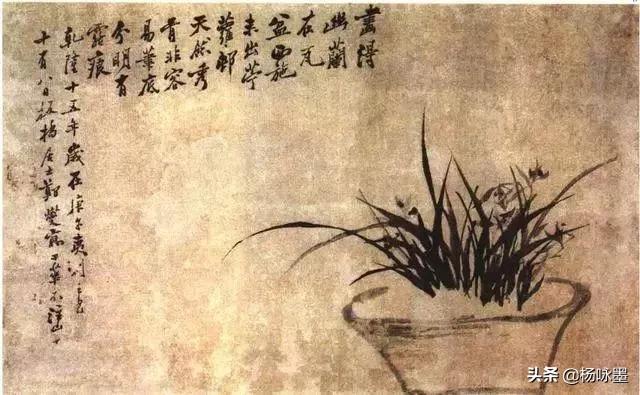 畫得
幽蘭
在瓦
盆西施
未出苧
蘿邨
天然秀
骨非容
易筆底
分明有
露痕
乾隆十五年歲在庚午夷則
十有八日板橋居士鄭燮
头条 @杨咏墨